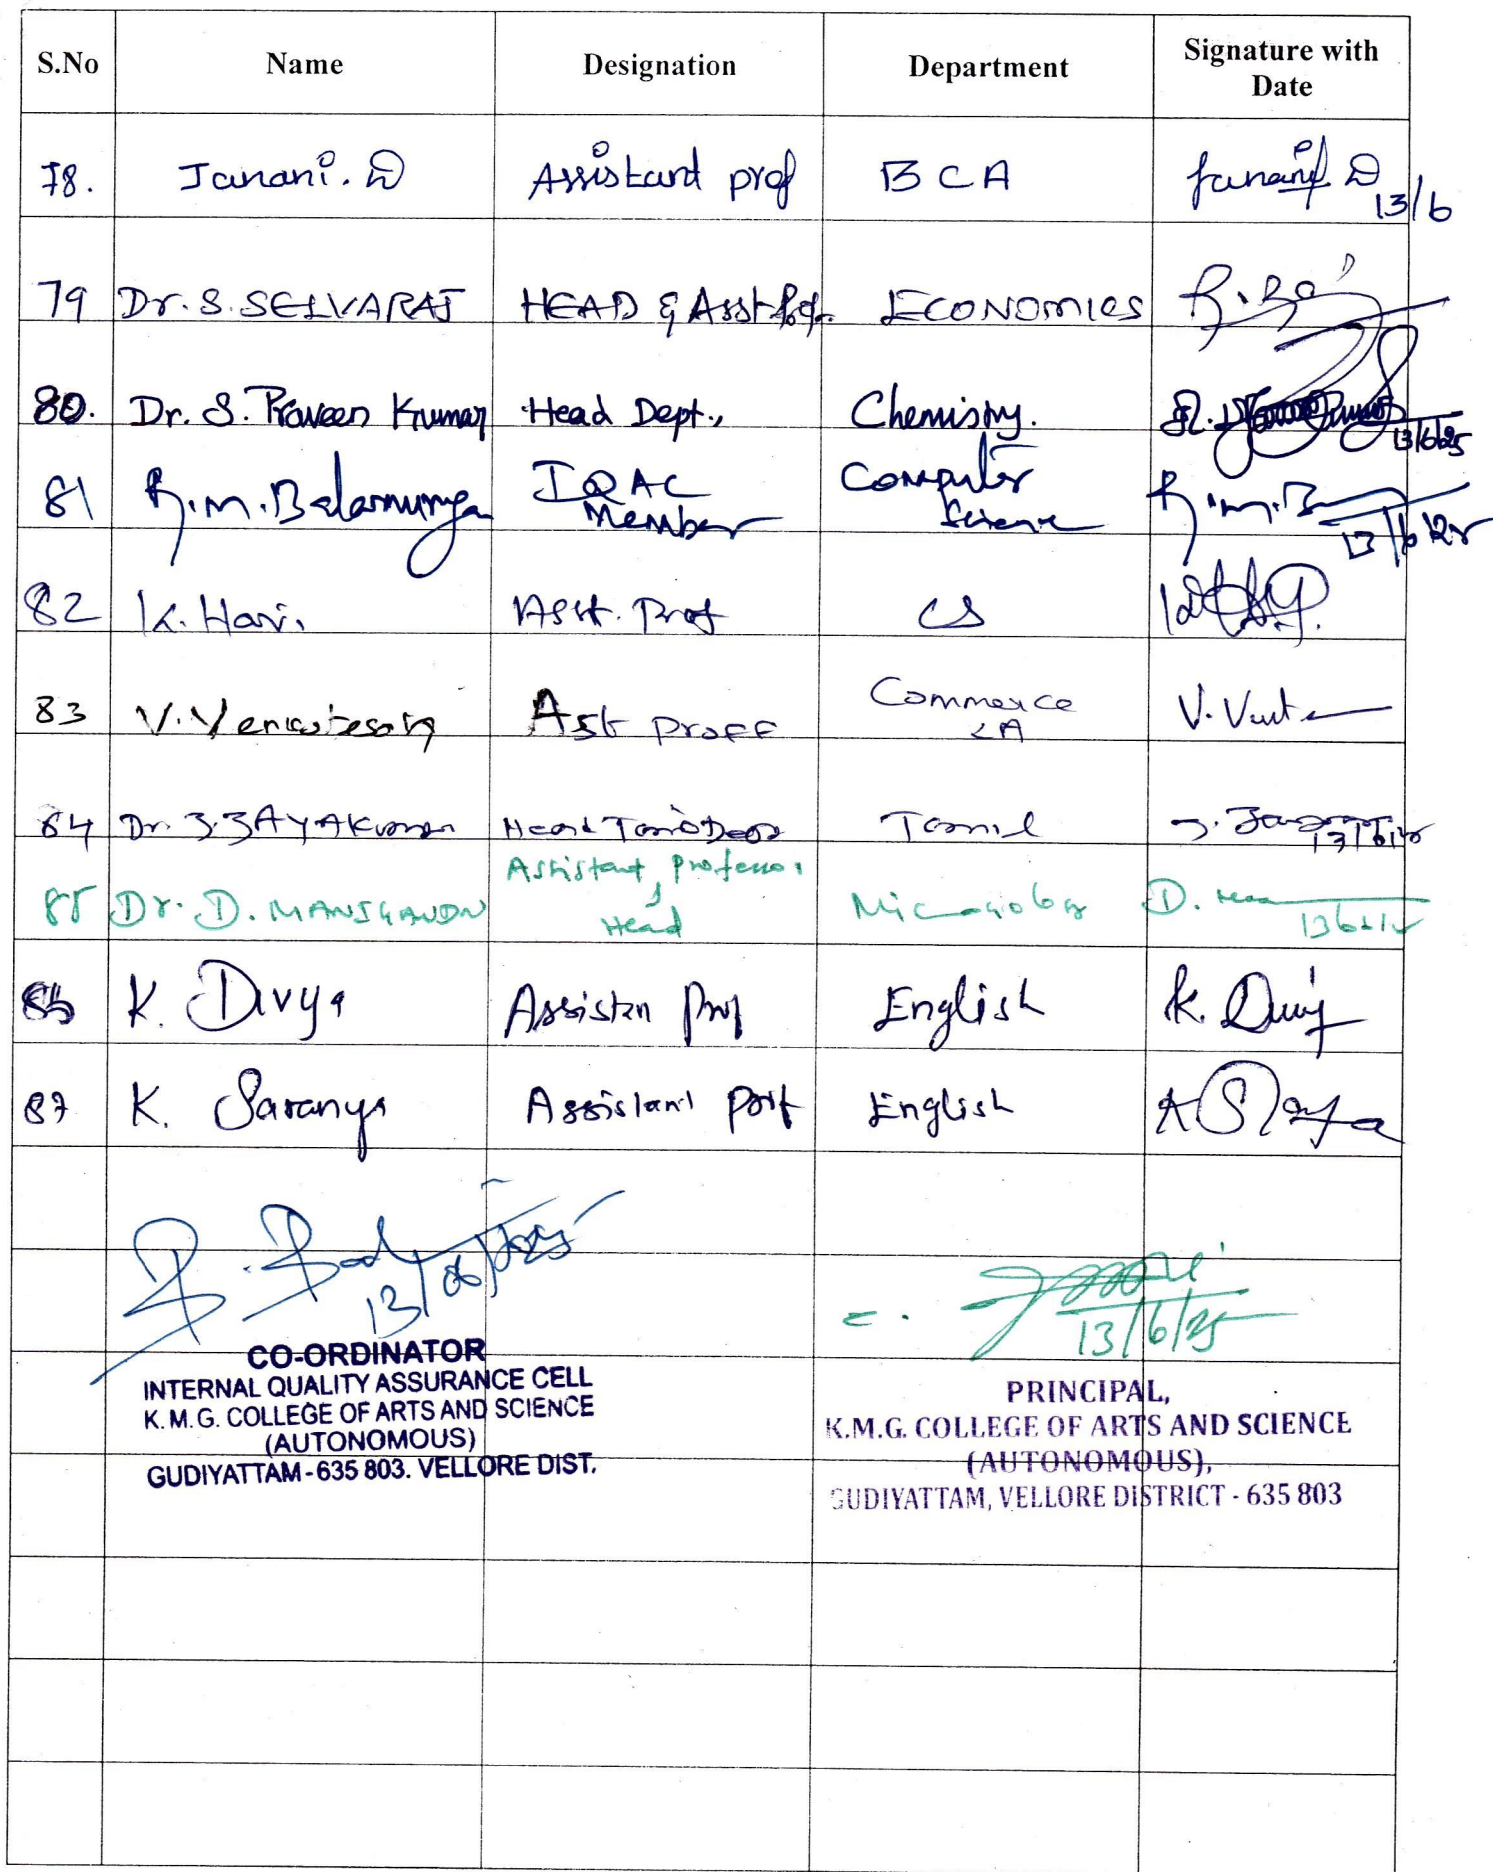 S.No Name Designation Department Signature with Date
78. Janani. D Assistant prof BCA Janani D 13/6
79 Dr. S. SELVARAJ HEAD & Asst Prof. ECONOMICS
80. Dr. S. Praveen Kumar Head Dept., Chemistry. 13/6/25
81 R.M. Balamuruga IQAC Member Computer Science R.M.B 13/6/25
82 K. Hari. Asst. Prof CS
83 V. Venkatesan Ast Proff Commerce CA V. Venk
84 Dr. J. JAYAKumar Head Tamil Dept Tamil 13/6/25
85 Dr. D. MANIGANDN Assistant Professor, Head Microbiology D. 13/6/25
86 K. Divya Assistan Prof English K. Divy
87 K. Saranya Assistant Porf English
13/06/2025
CO-ORDINATOR
INTERNAL QUALITY ASSURANCE CELL
K.M.G. COLLEGE OF ARTS AND SCIENCE
(AUTONOMOUS)
GUDIYATTAM - 635 803. VELLORE DIST.
13/6/25
PRINCIPAL,
K.M.G. COLLEGE OF ARTS AND SCIENCE
(AUTONOMOUS),
GUDIYATTAM, VELLORE DISTRICT - 635 803